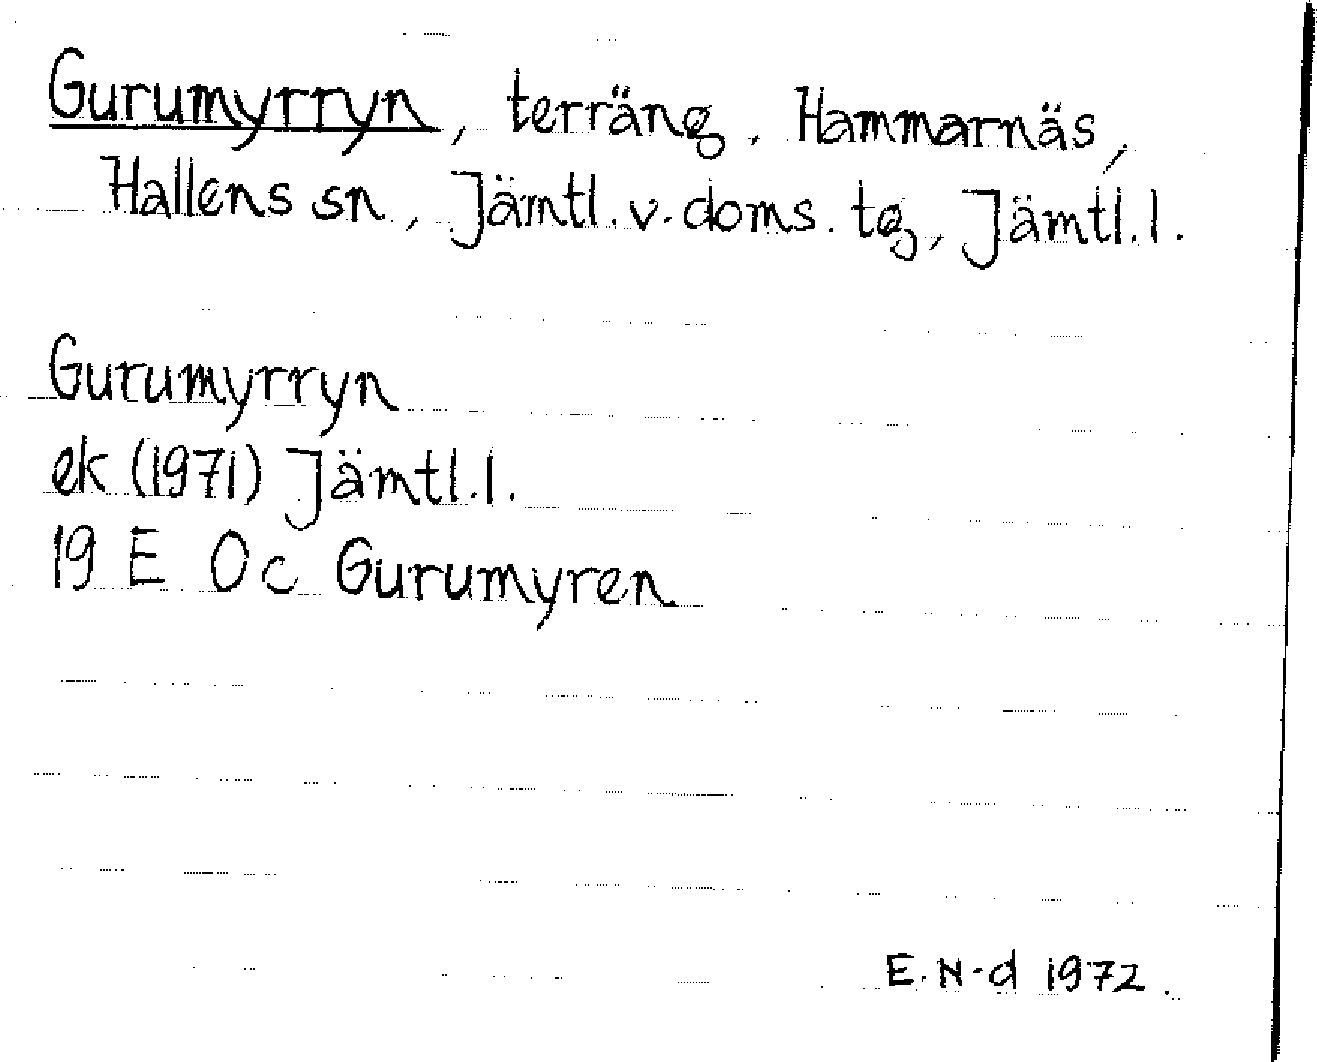 Gurumyrryn, terräng. Hammarnäs,
Hallens sn, Jämtl. v. doms. tg, Jämtl. l.
Gurumyrryn
ek (1971) Jämtl. l.
19 E 0c Gurumyren
E. N-d 1972.